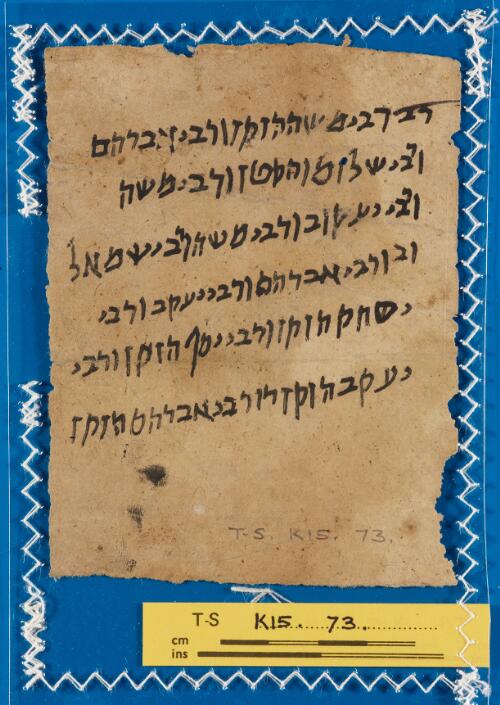 רבי רבי משה הזקן ורבי אברהם
ורבי שלמו הקטן ורבי משה
ורבי יעקוב ורבי משה ורבי שמאל
ורבי אברהם ורבי יעקב ורבי
יסחק הזקן ורבי הזקן ורבי
יעקב הזקן ורבי אברהם הזקן
T-S. K15. 73.
T-S K15. 73.
cm
ins